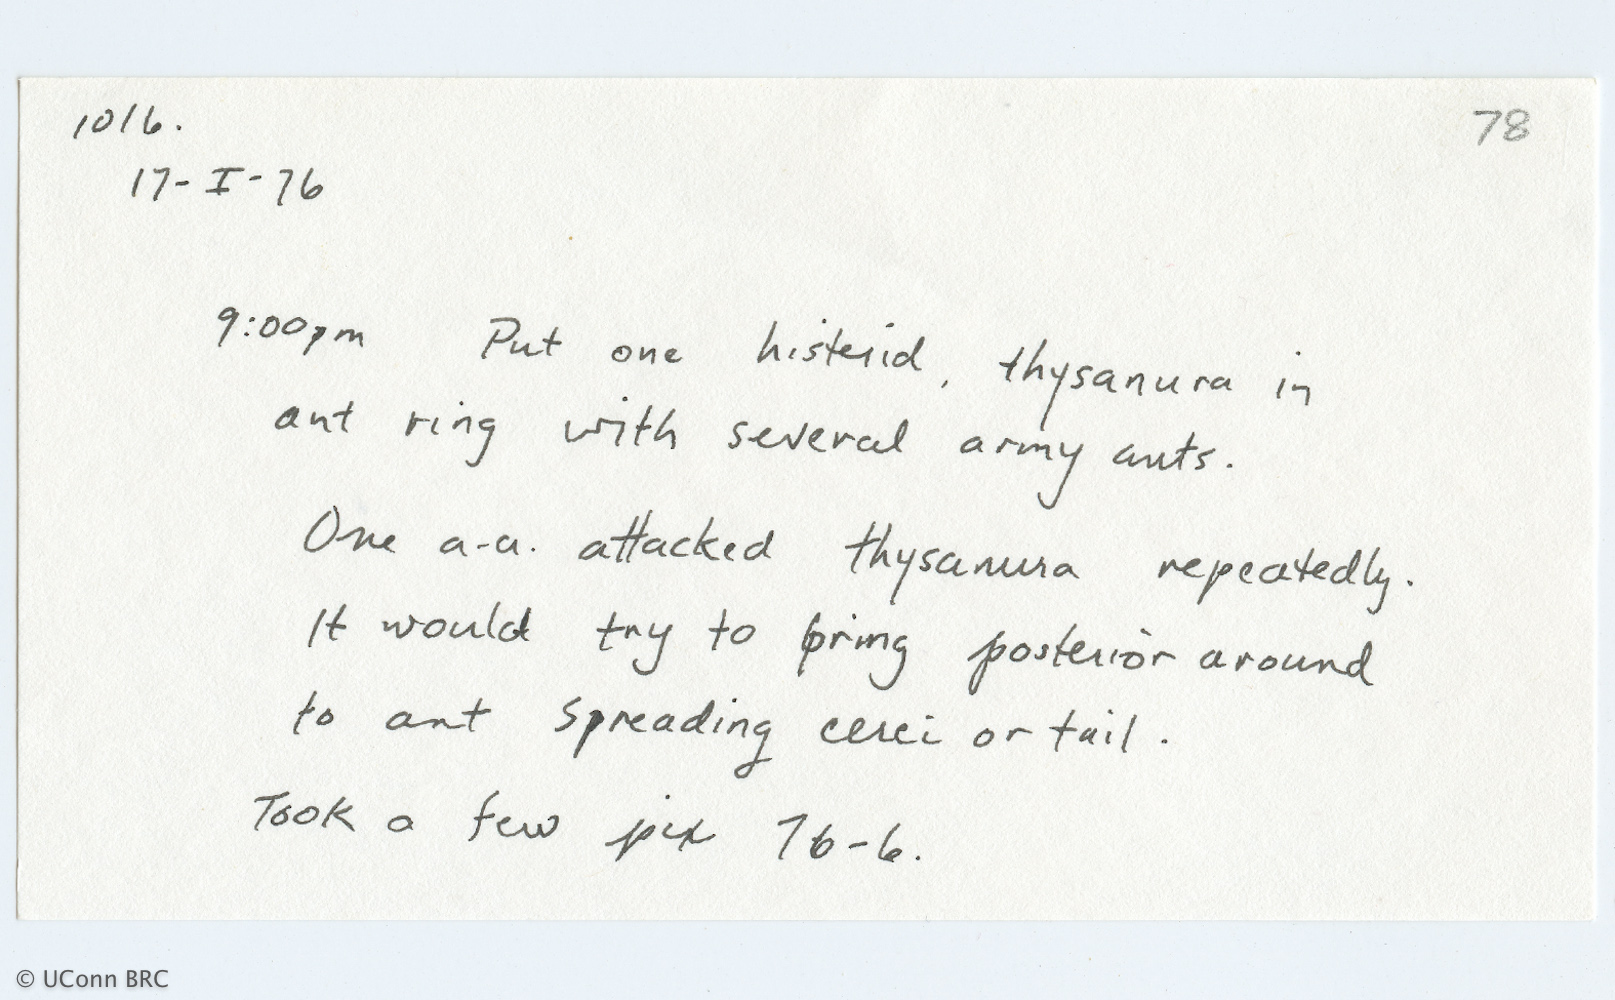 1016.
78
17-I-76
9:00pm Put one histerid, thysanura in
ant ring with several army ants.
One a-a. attacked thysanura repeatedly.
It would try to bring posterior around
to ant spreading cerci or tail.
Took a few pix 76-6.
© UConn BRC